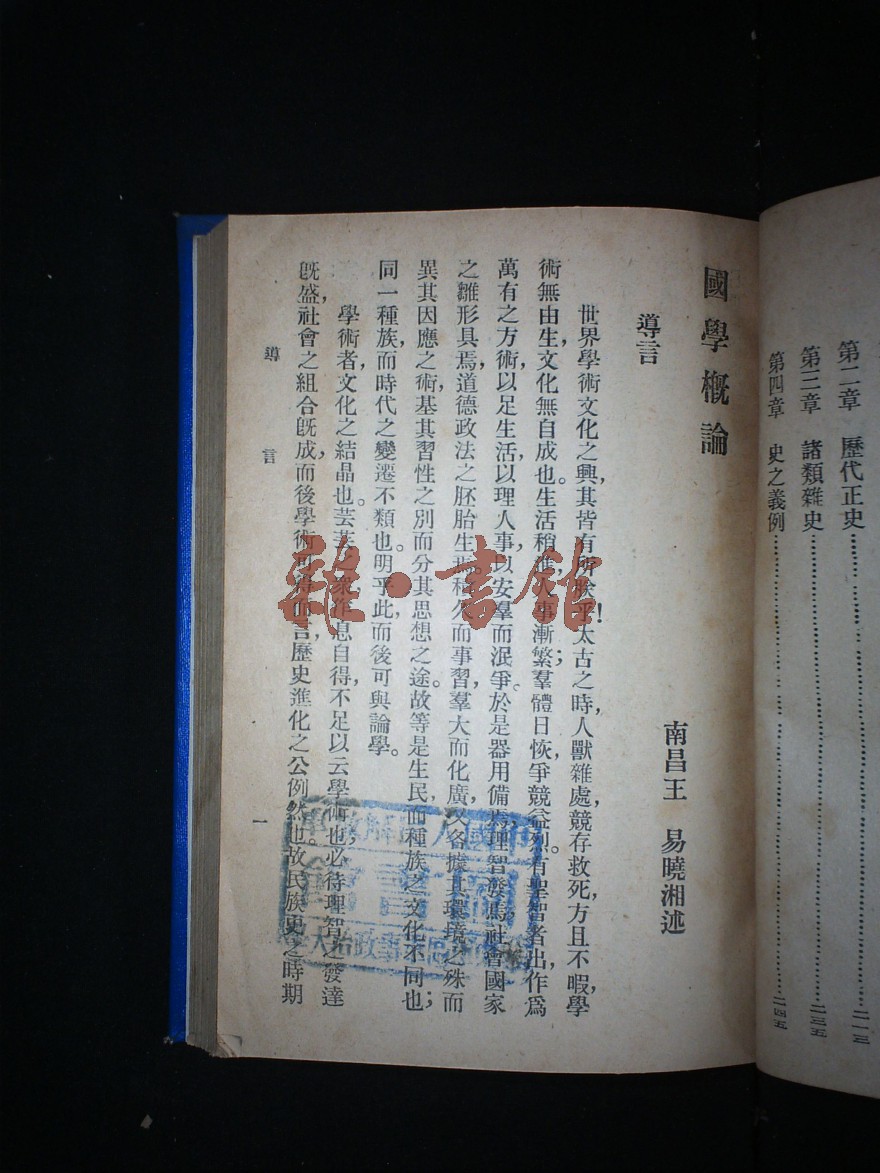 第二章 歷代正史……二一三
第三章 諸類雜史……二三五
第四章 史之義例……二四五
國學概論
南昌王 易曉湘述
導言
世界學術文化之興，其皆有所朕乎！太古之時，人獸雜處，競存救死，方且不暇，學
術無由生，文化無自成也。生活稍進，人事漸繁；羣體日恢，爭競益烈。有聖智者出，作爲
萬有之方術，以足生活，以理人事，以安羣而泯爭。於是器用備焉，理智發焉，社會國家
之雛形具焉，道德政法之胚胎生焉。積久而事習，羣大而化廣，又各據其環境之殊，而
異其因應之術，基其習性之別，而分其思想之途。故等是生民，而種族之文化不同也；
同一種族，而時代之變遷不類也。明乎此，而後可與論學。
學術者，文化之結晶也。芸芸之衆，作息自得，不足以云學術也；必待理智之發達
旣盛，社會之組合旣成，而後學術可得而言，歷史進化之公例然也。故民族史之時期
導言
一
雜·書館